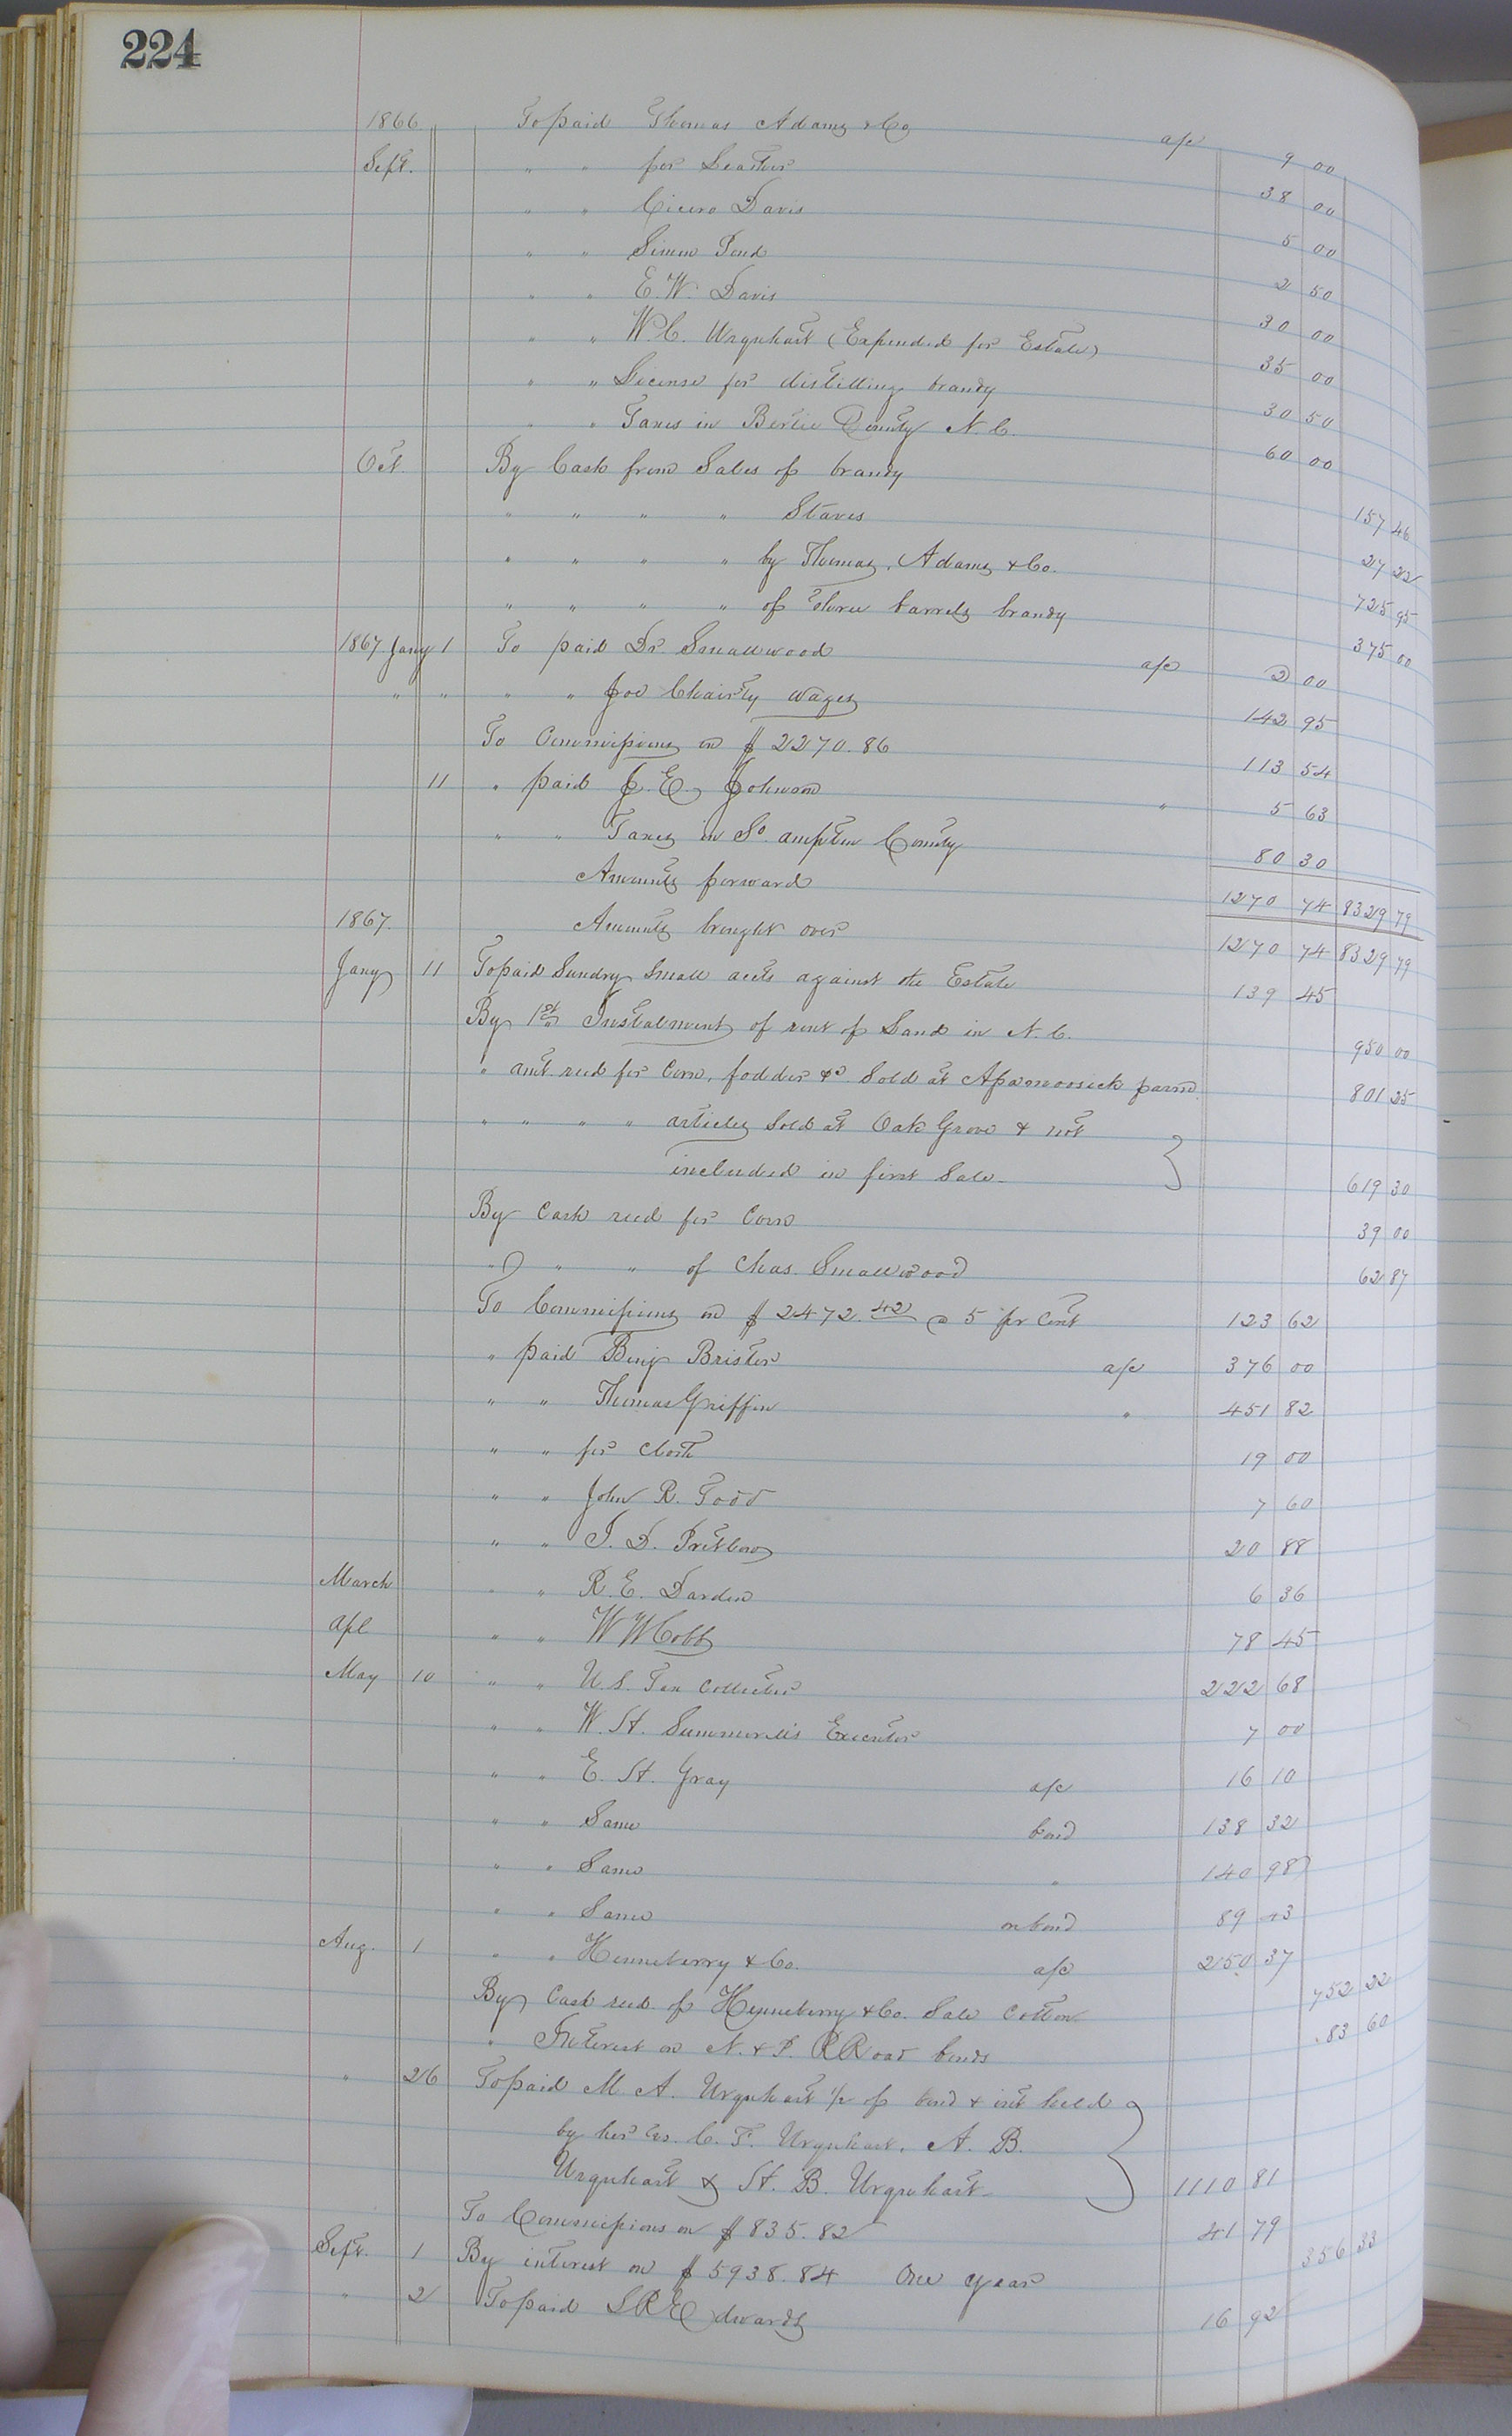 224
1866 To paid Thomas Adams & Co a/c 9 00
Sept. " " for Leather 38 00
" " Cicero Davis 5 00
" " Simon Pond 2 50
" " E. W. Davis 30 00
" " W. C. Urquhart (Expended for Estate) 35 00
" " License for distilling brandy 30 50
" " Taxes in Bertie County N. C. 60 00
Oct. By Cash from Sales of brandy 157 46
" " " " Staves 27 22
" " " " by Thomas, Adams & Co. 725 95
" " " " of three barrels brandy 375 00
1867 Jany 1 To paid Dr Smallwood a/c 2 00
" " " " Joe Chairty wages 142 95
To Commissions on $2270.86 113 54
11 " paid J. E. Johnson " 5 63
" " Taxes in So. ampton County 80 30
Amounts forward 1270 74 8329 79
1867. Amounts brought over 1270 74 8329 79
Jany 11 To paid Sundry Small accts against the Estate 139 45
By 1st Instalment of rent of Land in N. C. 950 00
" amt recd for Corn, fodder &c Sold at Apamoosick farm. 801 25
" " " " articles Sold at Oak Grove & not
included in first Sale 619 30
By Cash recd for Corn 39 00
" " " of Chas. Smallwood 62 87
To Commissions on $2472.42 @ 5 pr Cent 123 62
" paid Benj Brister a/c 376 00
" " Thomas Griffin " 451 82
" " for Cloth 19 00
" " John R. Todd 7 60
" " J. D. Pretlow 20 88
March " " R. E. Darden 6 36
Apl " " W W Cobb 78 45
May 10 " " U. S. Tax Collector 222 68
" " W. H. Summerell's Executor 7 00
" " E. H. Gray a/c 16 10
" " Same bond 138 32
" " Same " 140 98
" " Same on bond 89 13
Aug. 1 " " Henneberry & Co. a/c 250 37
By Cash recd of Henneberry & Co. Sale Cotton 752 22
" Interest on N. & P. R Road bonds 83 60
" 26 To paid M. A. Urquhart 1/2 of bond & int held
by her vs. C. F. Urquhart, A. B.
Urquhart & H. B. Urquhart 1110 81
To Commissions on $835.82 41 79
Sept. 1 By interest on $5938.84 One year 356 33
" 2 To paid L R Edwards 16 92